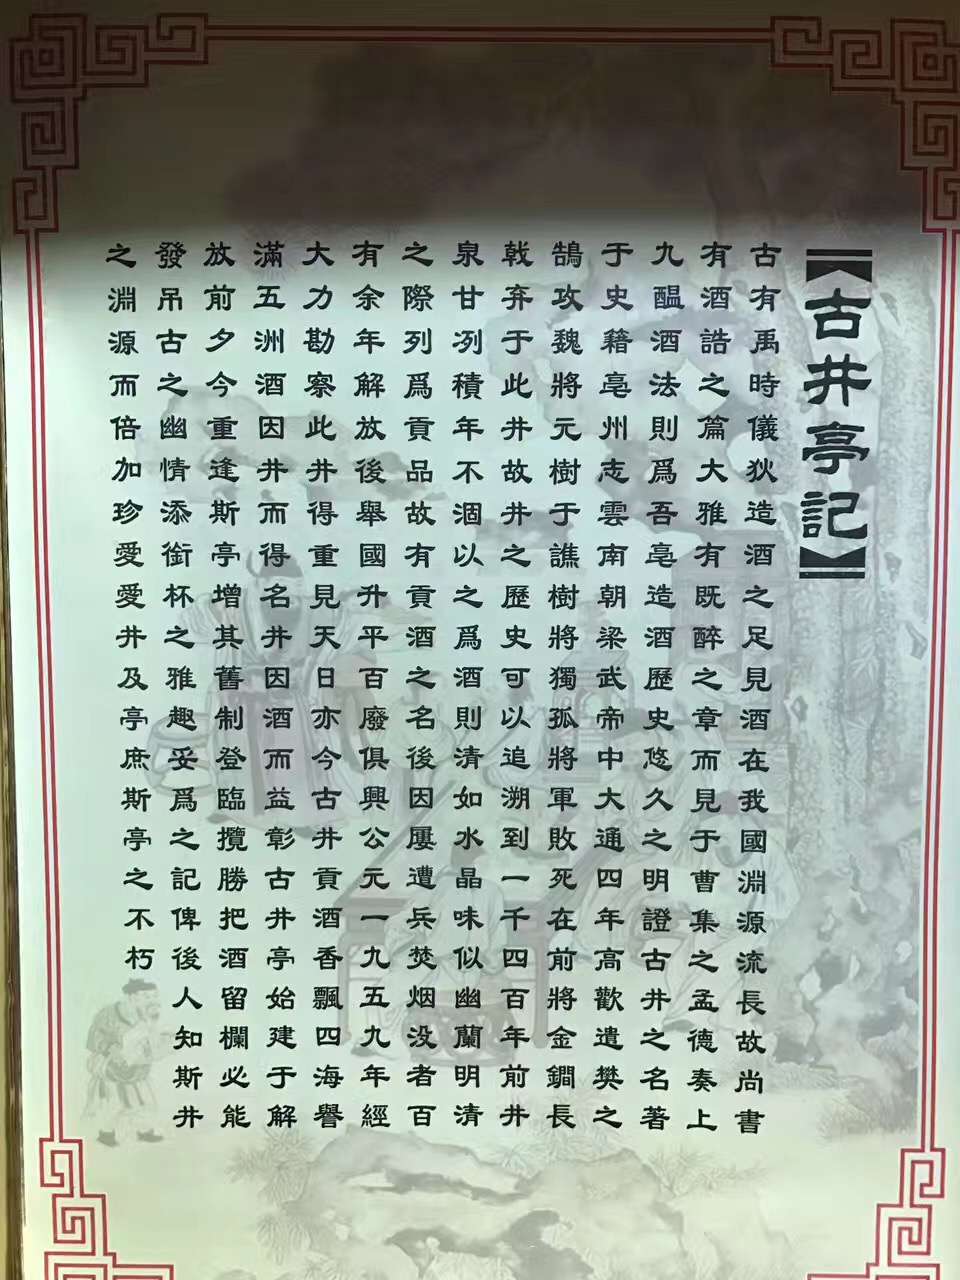 【古井亭記】
古有禹時儀狄造酒之足見酒在我國淵源流長故尚書
有酒誥之篇大雅有既醉之章而見于曹集之孟德奏上
九醞酒法則爲吾亳造酒歷史悠久之明證古井之名著
于史籍亳州志雲南朝梁武帝中大通四年高歡遣樊之
鵠攻魏將元樹于譙樹將獨孤將軍敗死在前將金鐧長
戟弃于此井故井之歷史可以追溯到一千四百年前井
泉甘冽積年不涸以之爲酒則清如水晶味似幽蘭明清
之際列爲貢品故有貢酒之名後因屢遭兵焚烟没者百
有余年解放後舉國升平百廢俱興公元一九五九年經
大力勘察此井得重見天日亦今古井貢酒香飄四海譽
滿五洲酒因井而得名井因酒而益彰古井亭始建于解
放前夕今重逢斯亭增其舊制登臨攬勝把酒留欄必能
發吊古之幽情添銜杯之雅趣妥爲之記俾後人知斯井
之淵源而倍加珍愛愛井及亭庶斯亭之不朽